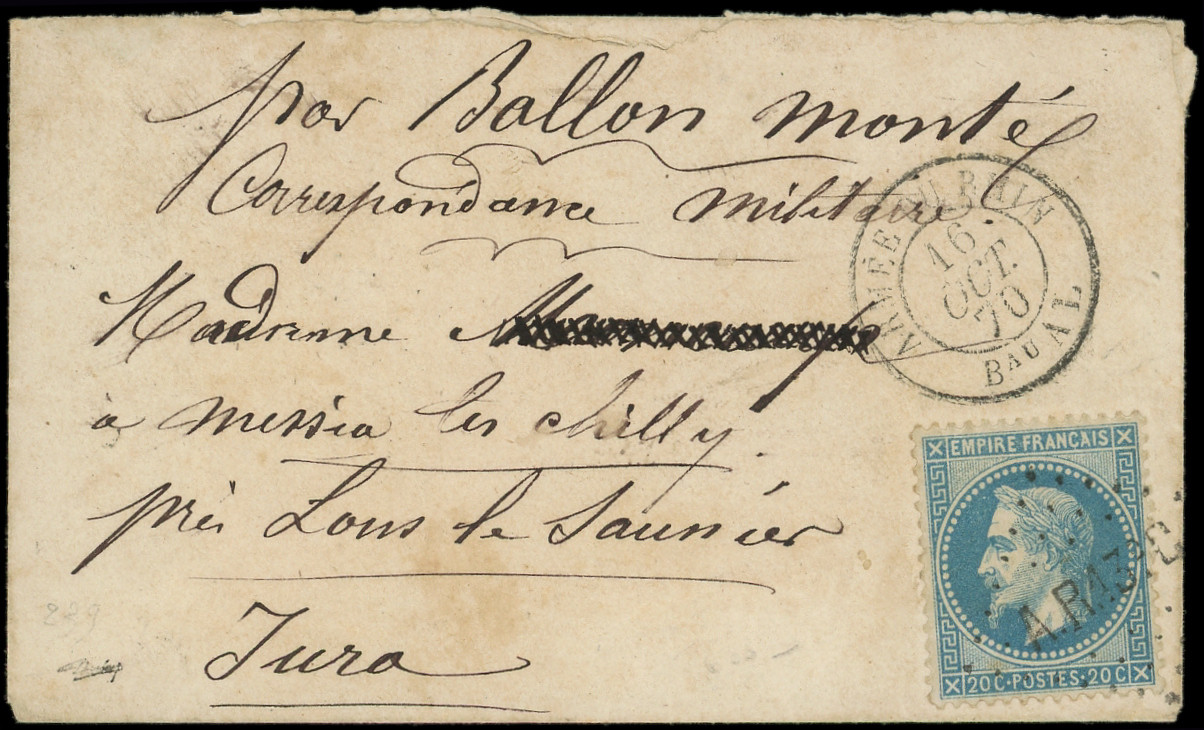 par Ballon monté
Correspondance militaire.
Madame
à messia les chilly.
près Lons le Saunier
Jura
ARMÉE DU RHIN
16
OCT.
70
BAU AL
EMPIRE FRANÇAIS
A.R.13
20 C · POSTES · 20 C